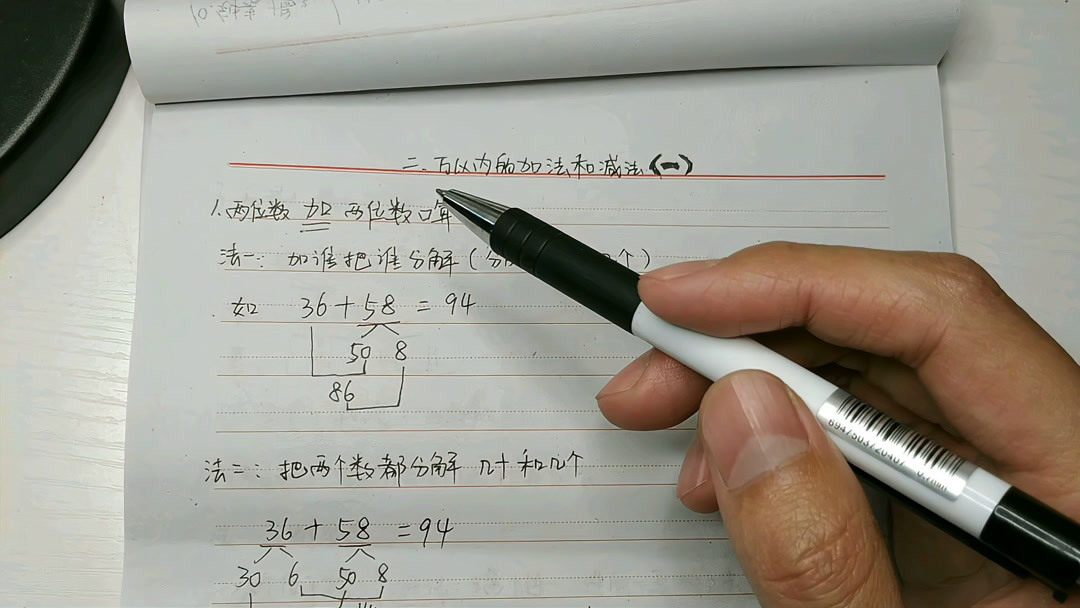 二.万以内的加法和减法(一)
1.两位数 加 两位数口算
法一: 加谁把谁分解(分 个)
如 36+58=94
50 8
86
法二: 把两个数都分解 几十和几个
36+58=94
30 6 50 8